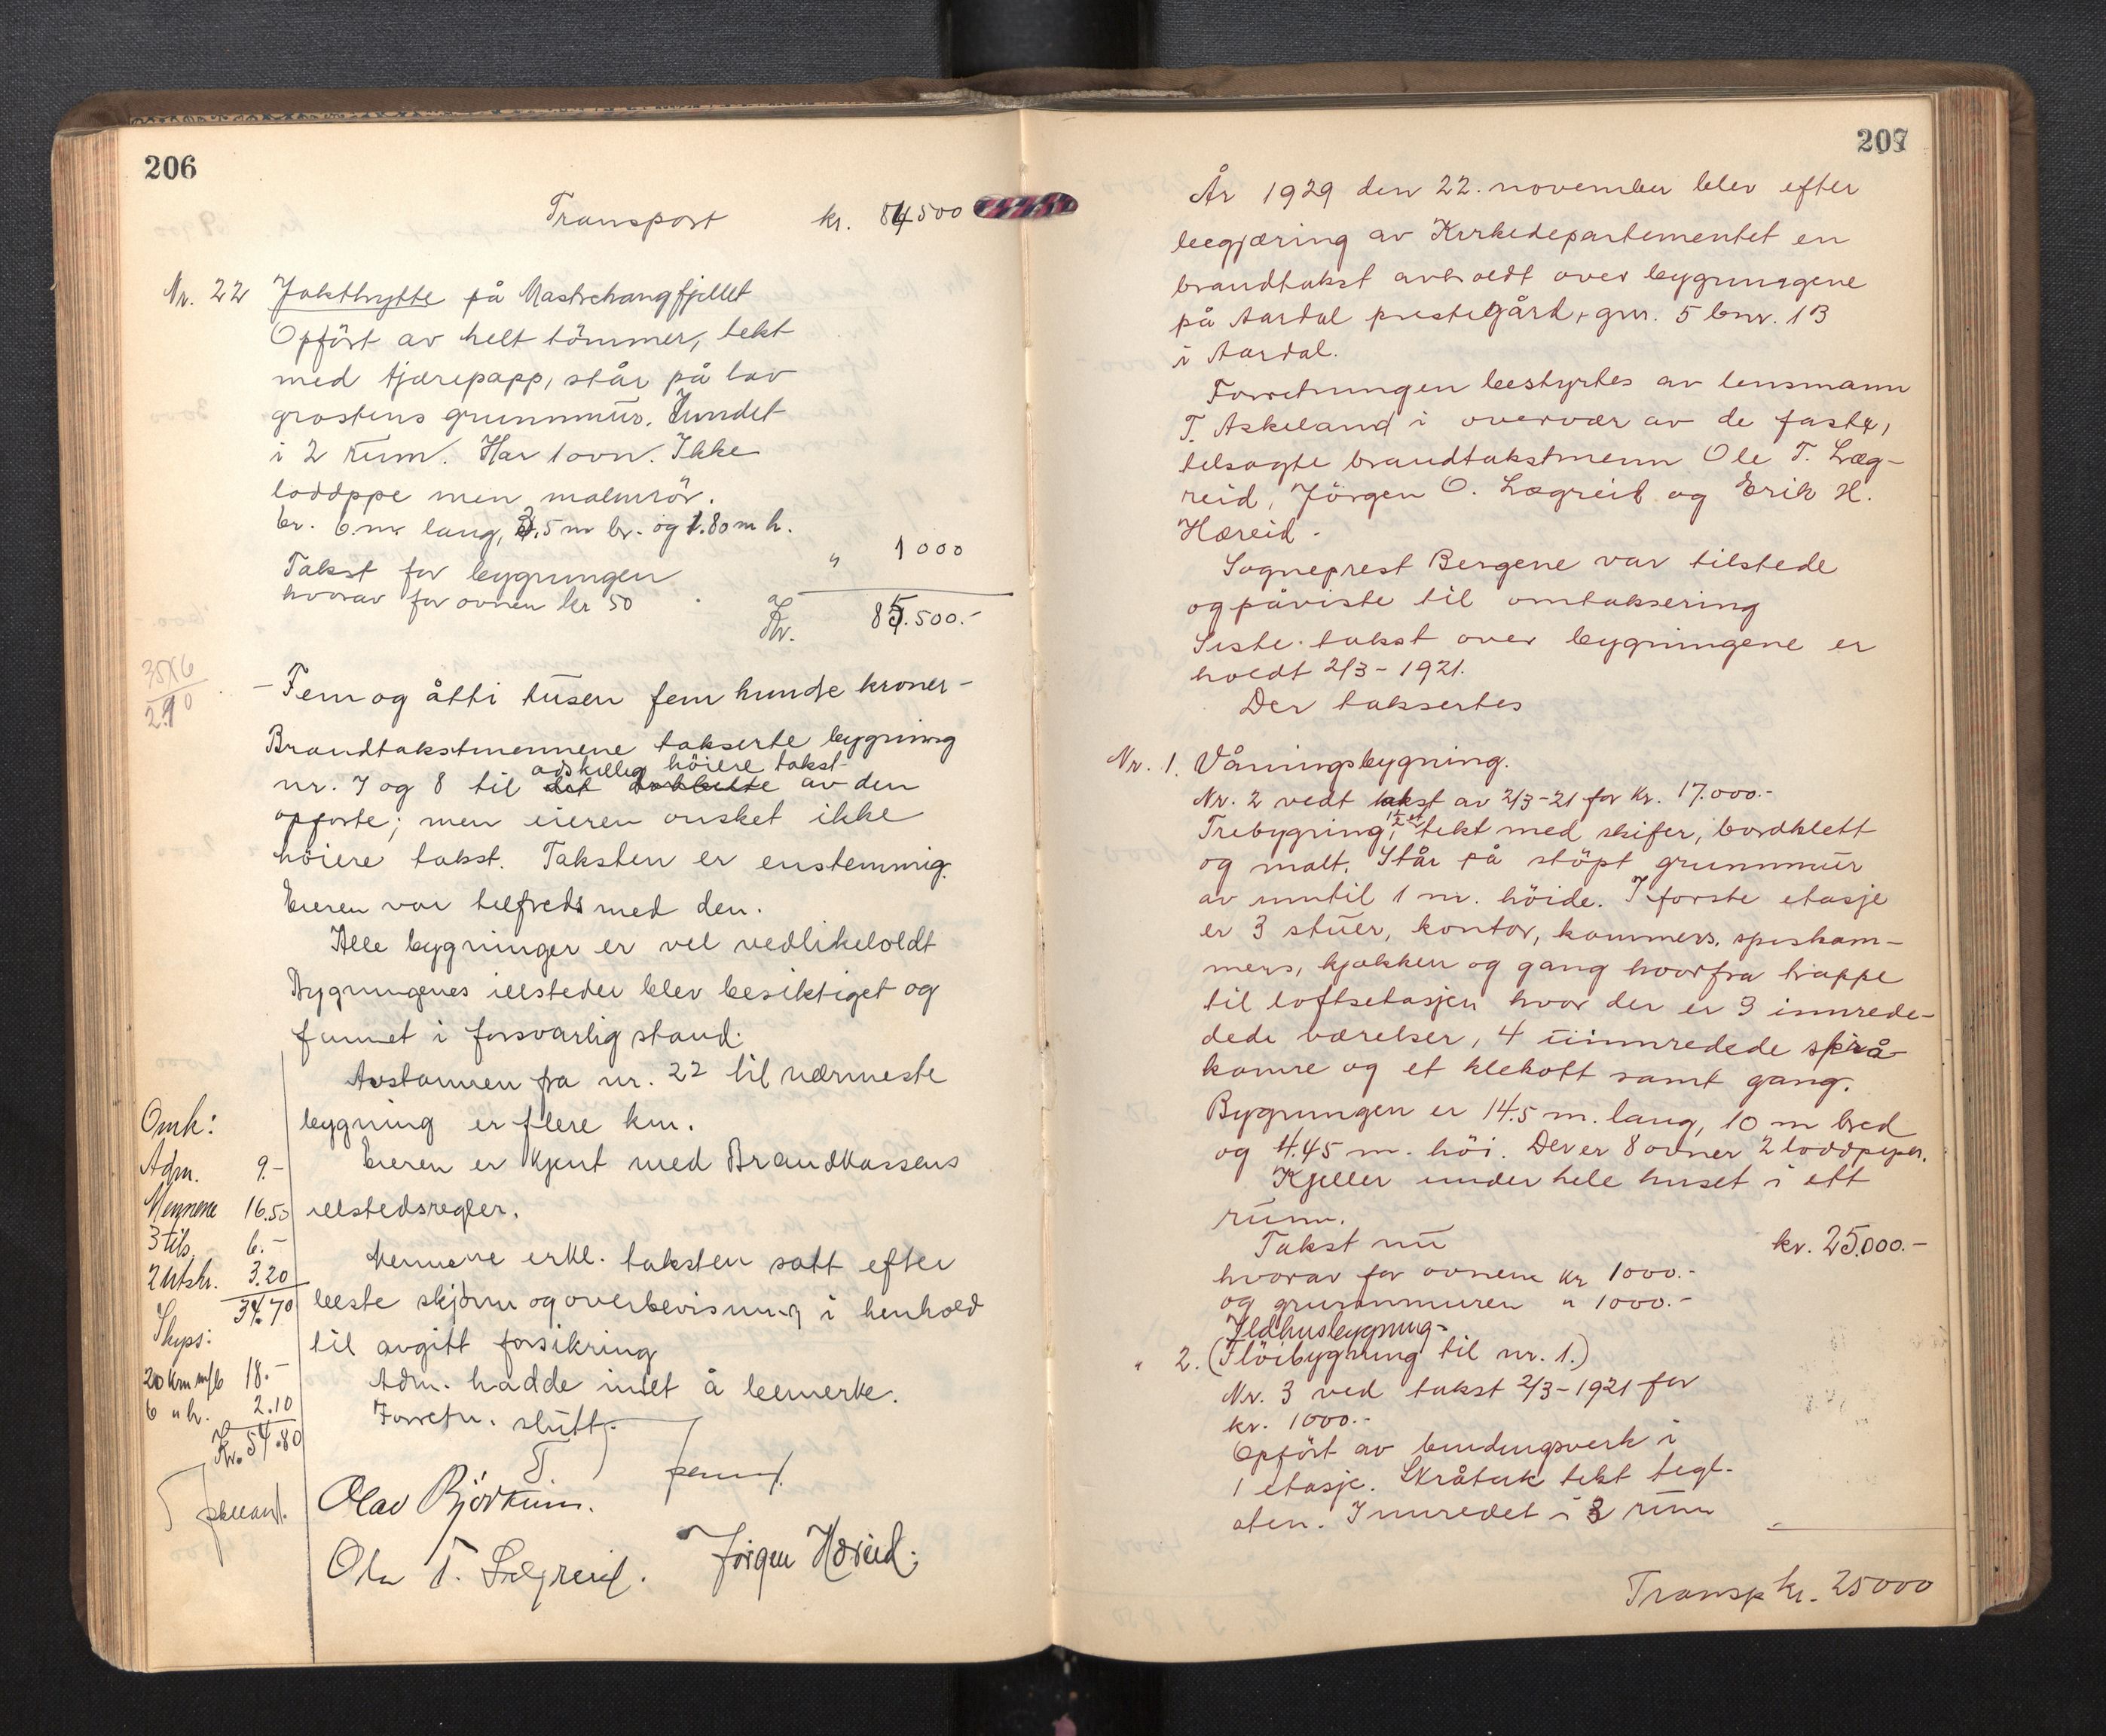 206
Transport kr. 84500
Nr. 22 Jakthytte på Mastrehaugfjellet
Opfört av helt tömmer, tekt
med tjærepapp, står på lav
grastens grunnmur. Inndelt
i 2 rum. Har 1 ovn. Ikke
loddppe men malmrör.
br. 6. m. lang, 3.5 m br. og 1.80 m h.
Takst for bygningen " 1000
hvorav for ovnen kr 50
Kr. 85.500.-
35X6
2.10
- Fem og åtti tusen fem hundre kroner -
Brandtakstmennene takserte bygning
adskillig höiere takst
nr. 7 og 8 til det dobbelte av den
opförte; men eieren önsket ikke
höiere takst. Taksten er enstemmig.
Eieren var tilfreds med den.
Alle bygninger er vel vedlikeholdt
Bygningenes illsteder blev besiktiget og
funnet i forsvarlig stand.
Avstannen fra nr. 22 til nærmeste
bygning er flere km.
Eieren er kjent med Brandkassens
illstedsregler.
Mennene erkl. taksten satt efter
beste skjönn og overbevisning i henhold
til avgitt forsikring
Adm. hadde intet å bemerke.
Forretn. slutt.
Omk:
Adm. 9.-
Mennene 16.50
3 tils. 6.-
2 utskr. 3.20
34.70
Skyss:
20 km m/b 18.-
6 " h. 2.10
Kr. 54.80
Olav Björkum.
Ola T. Lægreid. Jörgen Hæreid.
207
År 1929 den 22. november blev efter
begjæring av Kirkedepartementet en
brandtakst avholdt over bygningene
på Aardal prestegård, gnr. 5 bnr. 13
i Aardal.
Forretningen bestyrtes av lensmann
T. Askeland i overvær av de faste,
tilsagte brandtakstmenn Ole T. Læg-
reid, Jörgen O. Lægreid og Erik H.
Hæreid.
Sogneprest Bergene var tilstede
og påviste til omtaksering
Siste takst over bygningene er
holdt 2/3 - 1921.
Der taksertes
Nr. 1. Våningsbygning.
Nr. 2 vedt takst av 2/3-21 for kr. 17.000.-
Trebygning, 1½ et. tekt med skifer, bordklett
og malt. Står på stöpt grunnmur
av inntil 1 m. höide. I förste etasje
er 3 stuer, kontor, kammers, spiskam-
mers, kjøkken og gang hvorfra trappe
til loftsetasjen hvor der er 3 innrede-
dede værelser, 4 uinnredede skrå-
komre og et klekott samt gang.
Bygningen er 14.5 m. lang, 10 m bred
og 4.45 m. höi. Der er 8 ovner 2 loddpiper.
Kjeller under hele huset i ett
rum.
Takst nu kr. 25.000.-
hvorav for ovnene kr 1000.-
og grunnmuren " 1000.-
Ildhusbygning-
" 2. (Flöibygning til nr. 1.)
Nr. 3 ved takst 2/3 - 1921 for
kr. 1000.-
Opfört av bindingsverk i
1 etasje. Skråtak tekt tegl-
sten. Innredet i 3 rum
Transp kr. 25000